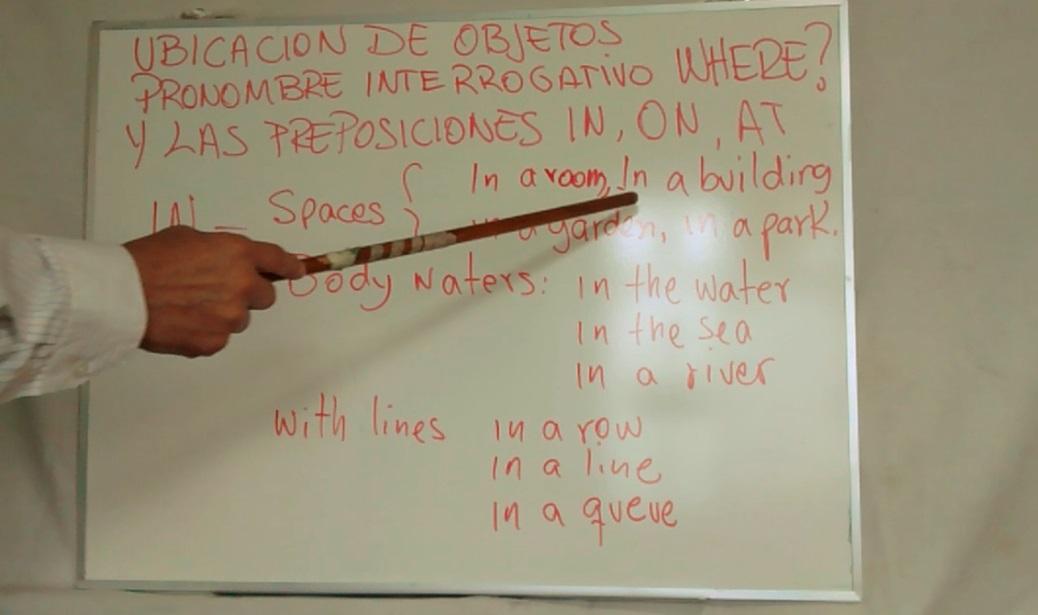 UBICACION DE OBJETOS
PRONOMBRE INTERROGATIVO WHERE?
Y LAS PREPOSICIONES IN, ON, AT
IN - Spaces { In a room, In a building
in a garden, in a park.
Body Waters: in the water
in the sea
in a river
with lines in a row
in a line
in a queue